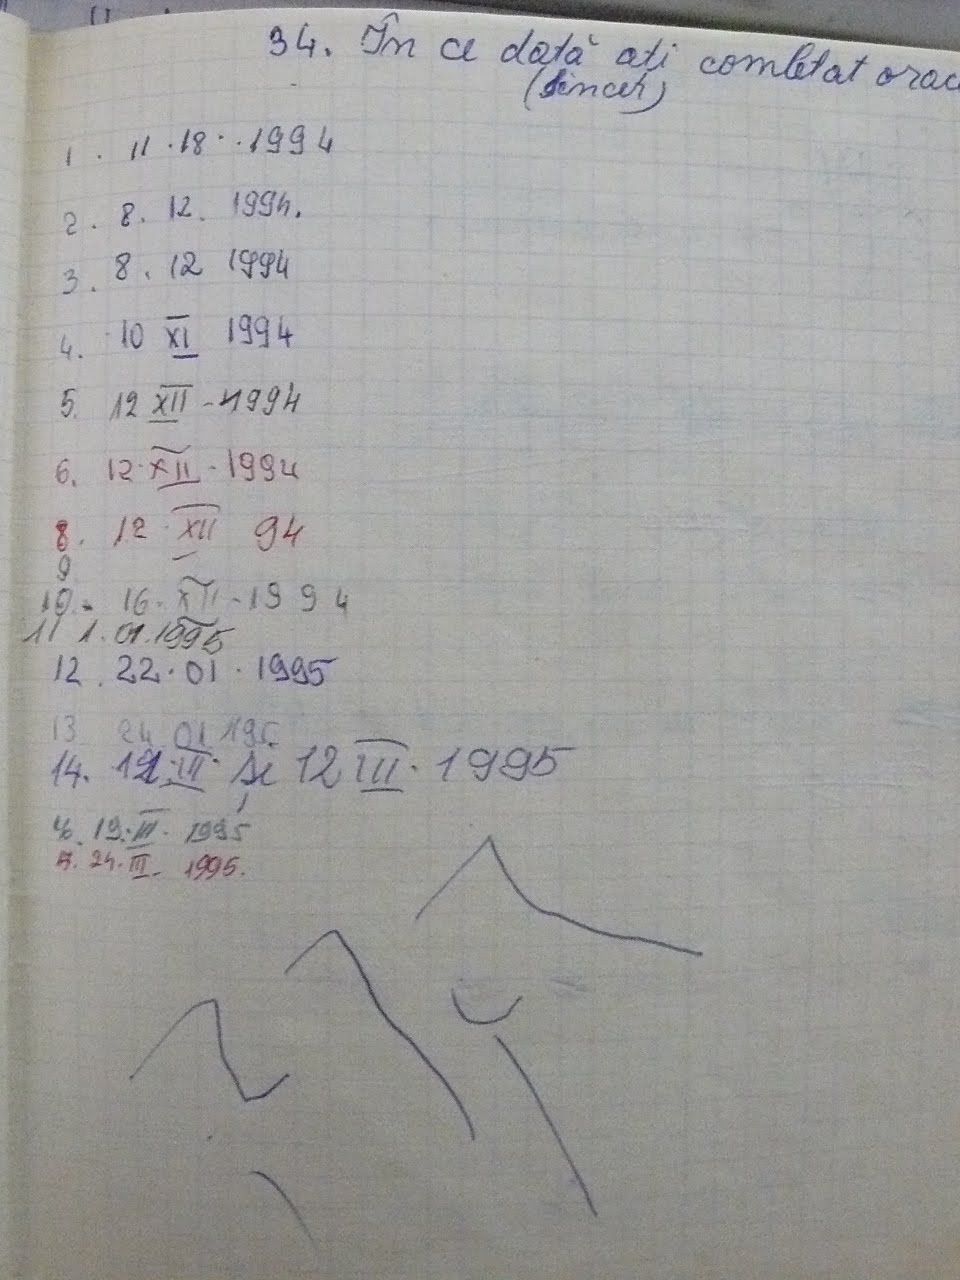 34. În ce dată ați combletat orac
(sincer)
1. 11.18..1994
2. 8. 12. 1994.
3. 8. 12 1994
4. 10 XI 1994
5. 12 XII - 1994
6. 12. XII. 1994
8. 12 XII 94
9
10. 16. XII - 1994
11 1.01.1995
12. 22.01.1995
13 24 01 195
14. 12 III și 12 III. 1995
19. III. 1995
24. III. 1995.